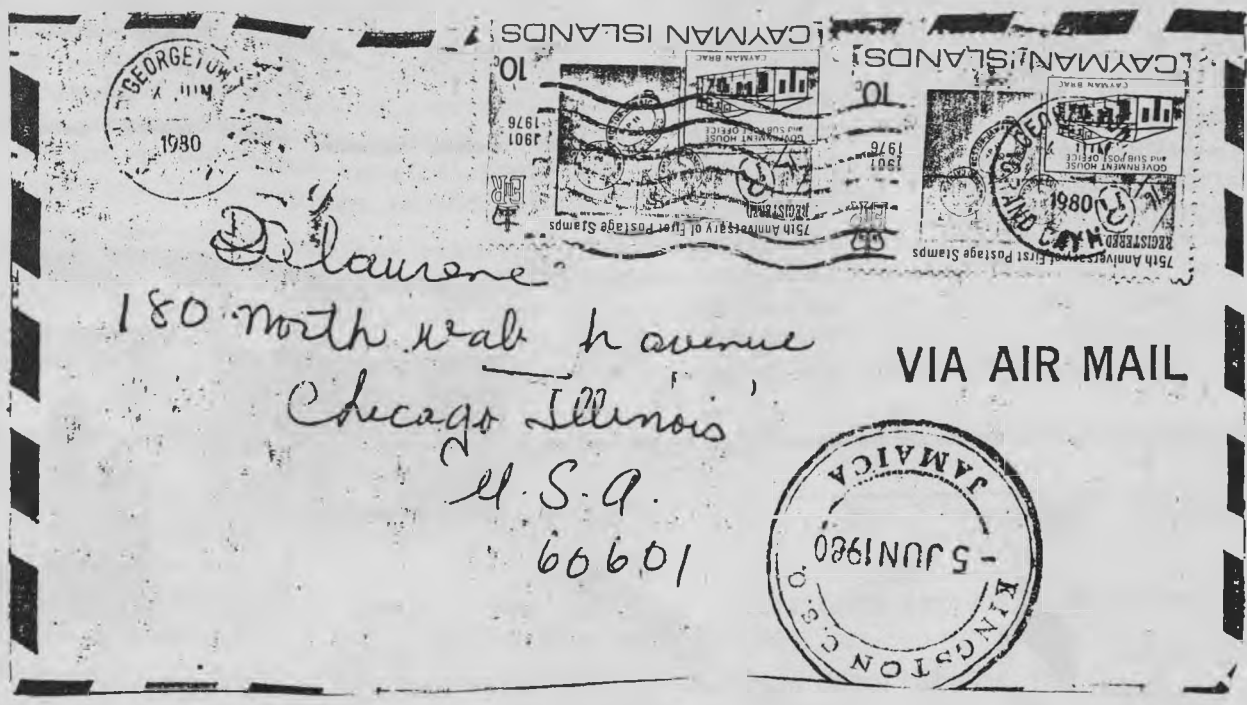 GEORGETOWN
JUN
1980
CAYMAN ISLANDS
10c
CAYMAN BRAC
GOVERNMENT HOUSE
and SUB POST OFFICE
1901
1976
REGISTERED
75th Anniversary of First Postage Stamps
CAYMAN ISLANDS
10c
CAYMAN BRAC
GOVERNMENT HOUSE
and SUB POST OFFICE
1901
1976
1980
REGISTERED
75th Anniversary of First Postage Stamps
DeLaurene
180 North wab h avenue
Chicago Illinois
U.S.A.
60601
VIA AIR MAIL
KINGSTON C.S.O.
- 5 JUN 1980
JAMAICA